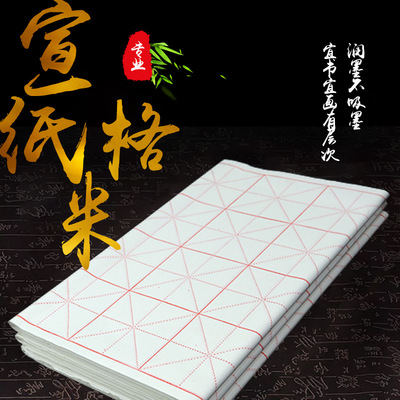 宣纸
米格
专业
润墨不吸墨
宜书宜画有层次